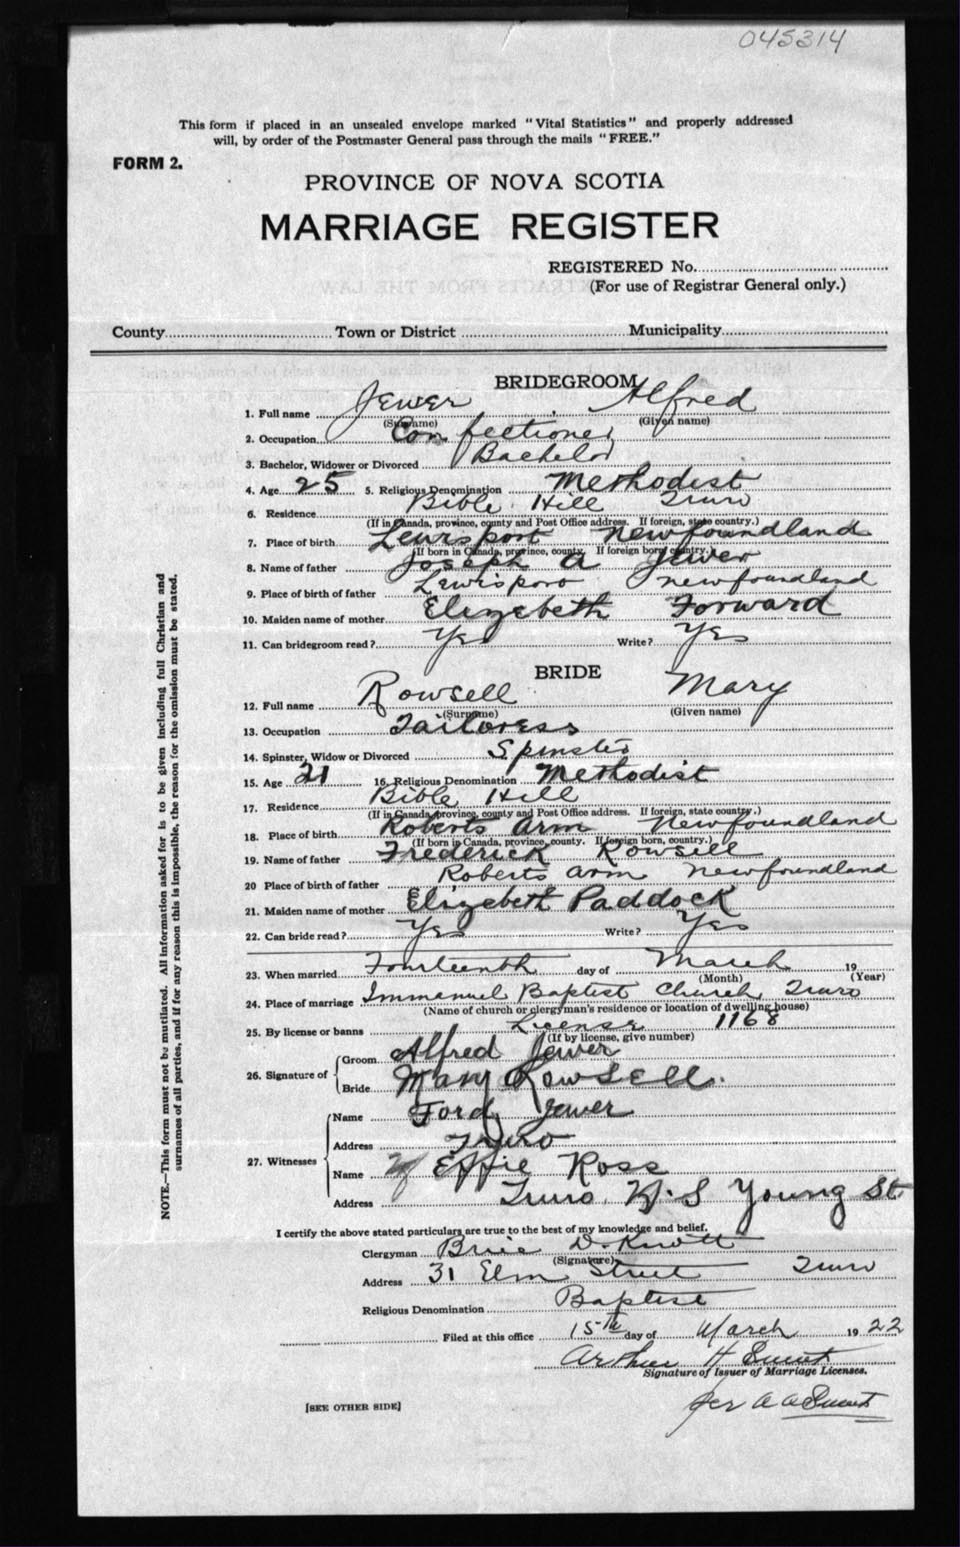 045314
This form if placed in an unsealed envelope marked "Vital Statistics" and properly addressed
will, by order of the Postmaster General pass through the mails "FREE."
FORM 2.
PROVINCE OF NOVA SCOTIA
MARRIAGE REGISTER
REGISTERED No.
(For use of Registrar General only.)
County Town or District Municipality
BRIDEGROOM
1. Full name Jewer, Alfred
(Surname) (Given name)
2. Occupation Confectioner
3. Bachelor, Widower or Divorced Bachelor
4. Age 25 5. Religious Denomination Methodist
6. Residence Bible Hill Truro
(If in Canada, province, county and Post Office address. If foreign, state country.)
7. Place of birth Lewisport Newfoundland
(If born in Canada, province, county. If foreign born, country.)
8. Name of father Joseph A Jewer
9. Place of birth of father Lewisporo Newfoundland
10. Maiden name of mother Elizebeth Forward
11. Can bridegroom read? Yes Write? Yes
BRIDE
12. Full name Rowsell Mary
(Surname) (Given name)
13. Occupation Tailoress
14. Spinster, Widow or Divorced Spinster
15. Age 21 16. Religious Denomination Methodist
17. Residence Bible Hill
(If in Canada, province, county and Post Office address. If foreign, state country.)
18. Place of birth Roberts Arm Newfoundland
(If born in Canada, province, county. If foreign born, country.)
19. Name of father Frederick Rowsell
20 Place of birth of father Roberts Arm Newfoundland
21. Maiden name of mother Elizebeth Paddock
22. Can bride read? Yes Write? Yes
23. When married Fourteenth day of March 19
(Month) (Year)
24. Place of marriage Immanuel Baptist Church, Truro
(Name of church or clergyman's residence or location of dwelling house)
25. By license or banns License 1168
(If by license, give number)
26. Signature of Groom Alfred Jewer
Bride Mary Rowsell.
27. Witnesses Name Ford Jewer
Address Truro
Name Effie Ross
Address Truro N.S Young St
I certify the above stated particulars are true to the best of my knowledge and belief.
Clergyman Brice D. Knott
(Signature)
Address 31 Elm Street Truro
Religious Denomination Baptist
Filed at this office 15th day of March 1922
Arthur H Smith
Signature of Issuer of Marriage Licenses.
per A A Smith
[SEE OTHER SIDE]
NOTE.—This form must not be mutilated. All information asked for is to be given including full Christian and
surnames of all parties, and if for any reason this is impossible, the reason for the omission must be stated.